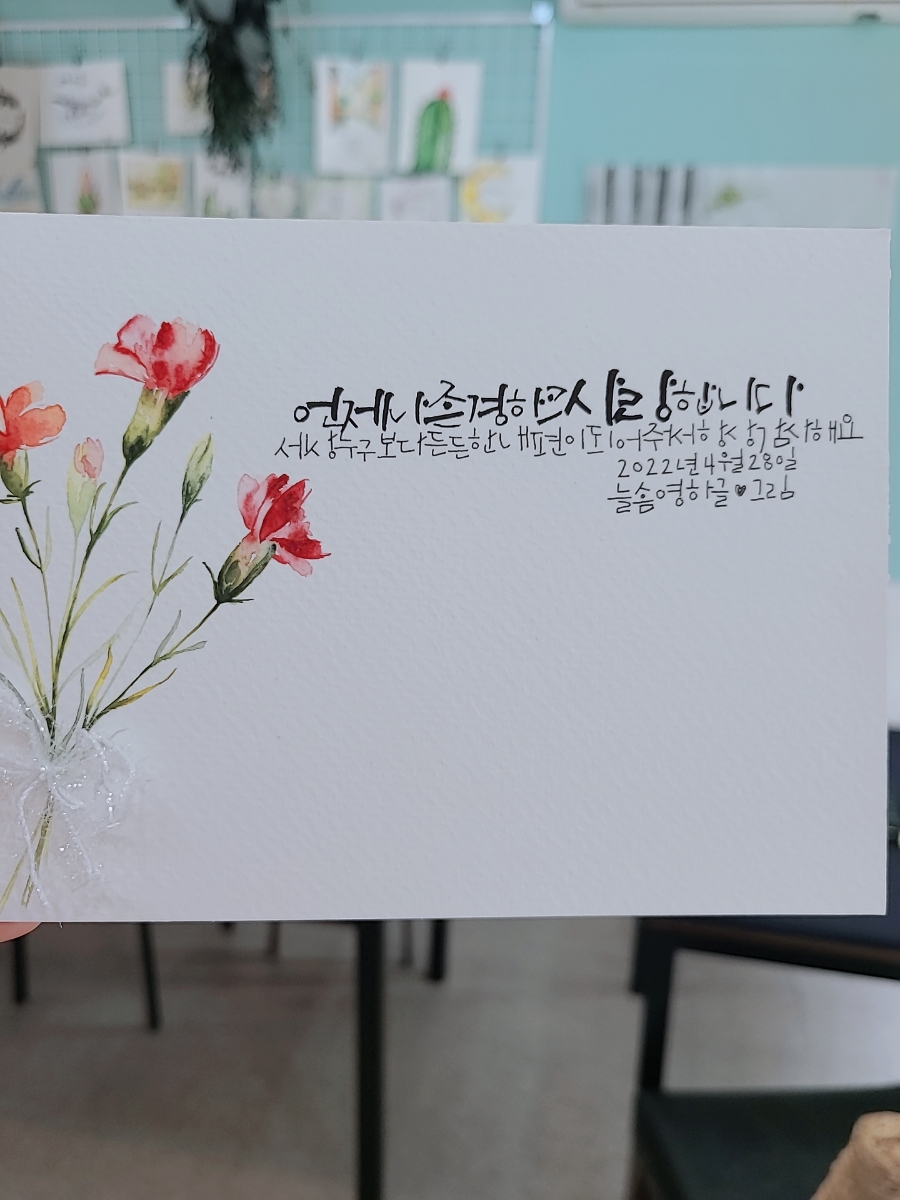 언제나존경하
세상누구보다든든한내편이되어주셔서항상감사해요
2022년4월28일
늘솜영하글♥그림